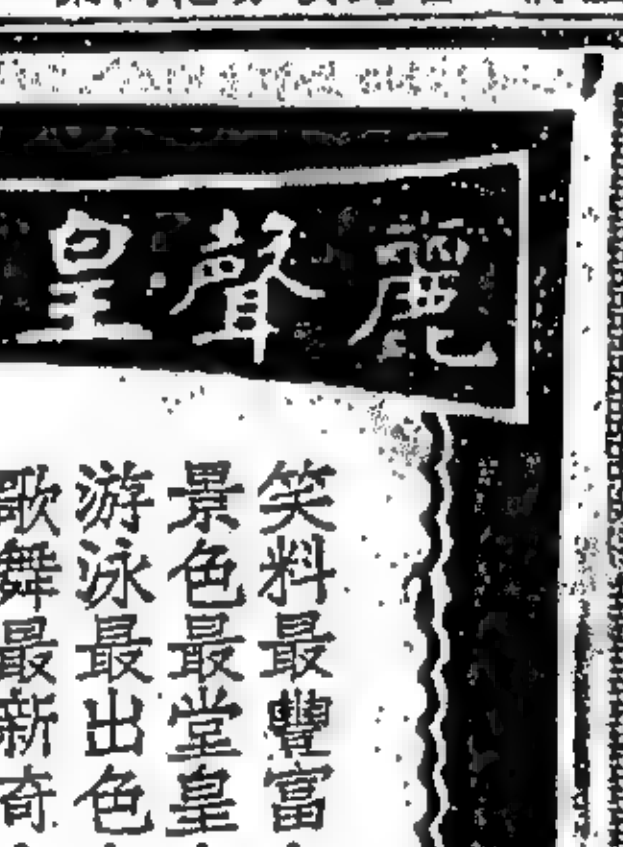 麗聲皇
笑料最豐富
景色最堂皇
游泳最出色
歌舞最新奇